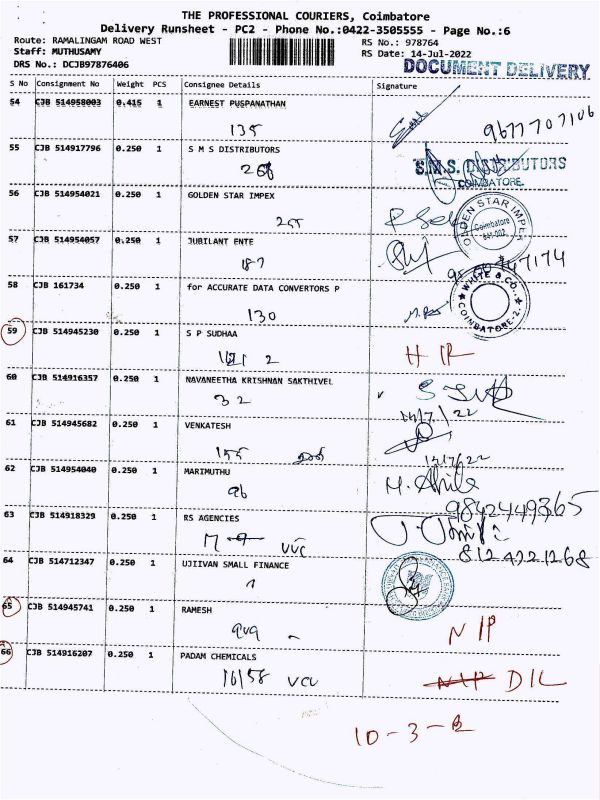 THE PROFESSIONAL COURIERS, Coimbatore
Delivery Runsheet - PC2 - Phone No.:0422-3505555 - Page No.:6
Route: RAMALINGAM ROAD WEST RS No.: 978764
Staff: MUTHUSAMY RS Date: 14-Jul-2022
DRS No.: DCJB97876406 DOCUMENT DELIVERY
S No Consignment No Weight PCS Consignee Details Signature
54 CJB 514958003 0.415 1 EARNEST PUSPANATHAN
135 9677707106
55 CJB 514917796 0.250 1 S M S DISTRIBUTORS S.M.S. DISTRIBUTORS
COIMBATORE.
56 CJB 514954021 0.250 1 GOLDEN STAR IMPEX
GOLDEN STAR IMPEX
Coimbatore
641-002
57 CJB 514954057 0.250 1 JUBILANT ENTE
187
58 CJB 161734 0.250 1 for ACCURATE DATA CONVERTORS P
130
WHITE & CO.,
COIMBATORE-2
59 CJB 514945230 0.250 1 S P SUDHAA
2
60 CJB 514916357 0.250 1 NAVANEETHA KRISHNAN SAKTHIVEL
32
14/7/22
61 CJB 514945682 0.250 1 VENKATESH
14/7/22
62 CJB 514954040 0.250 1 MARIMUTHU
96
9842449365
63 CJB 514918329 0.250 1 RS AGENCIES
8124221268
64 CJB 514712347 0.250 1 UJIIVAN SMALL FINANCE
65 CJB 514945741 0.250 1 RAMESH
N/P
66 CJB 514916207 0.250 1 PADAM CHEMICALS
16/58 VCU N/P D/L